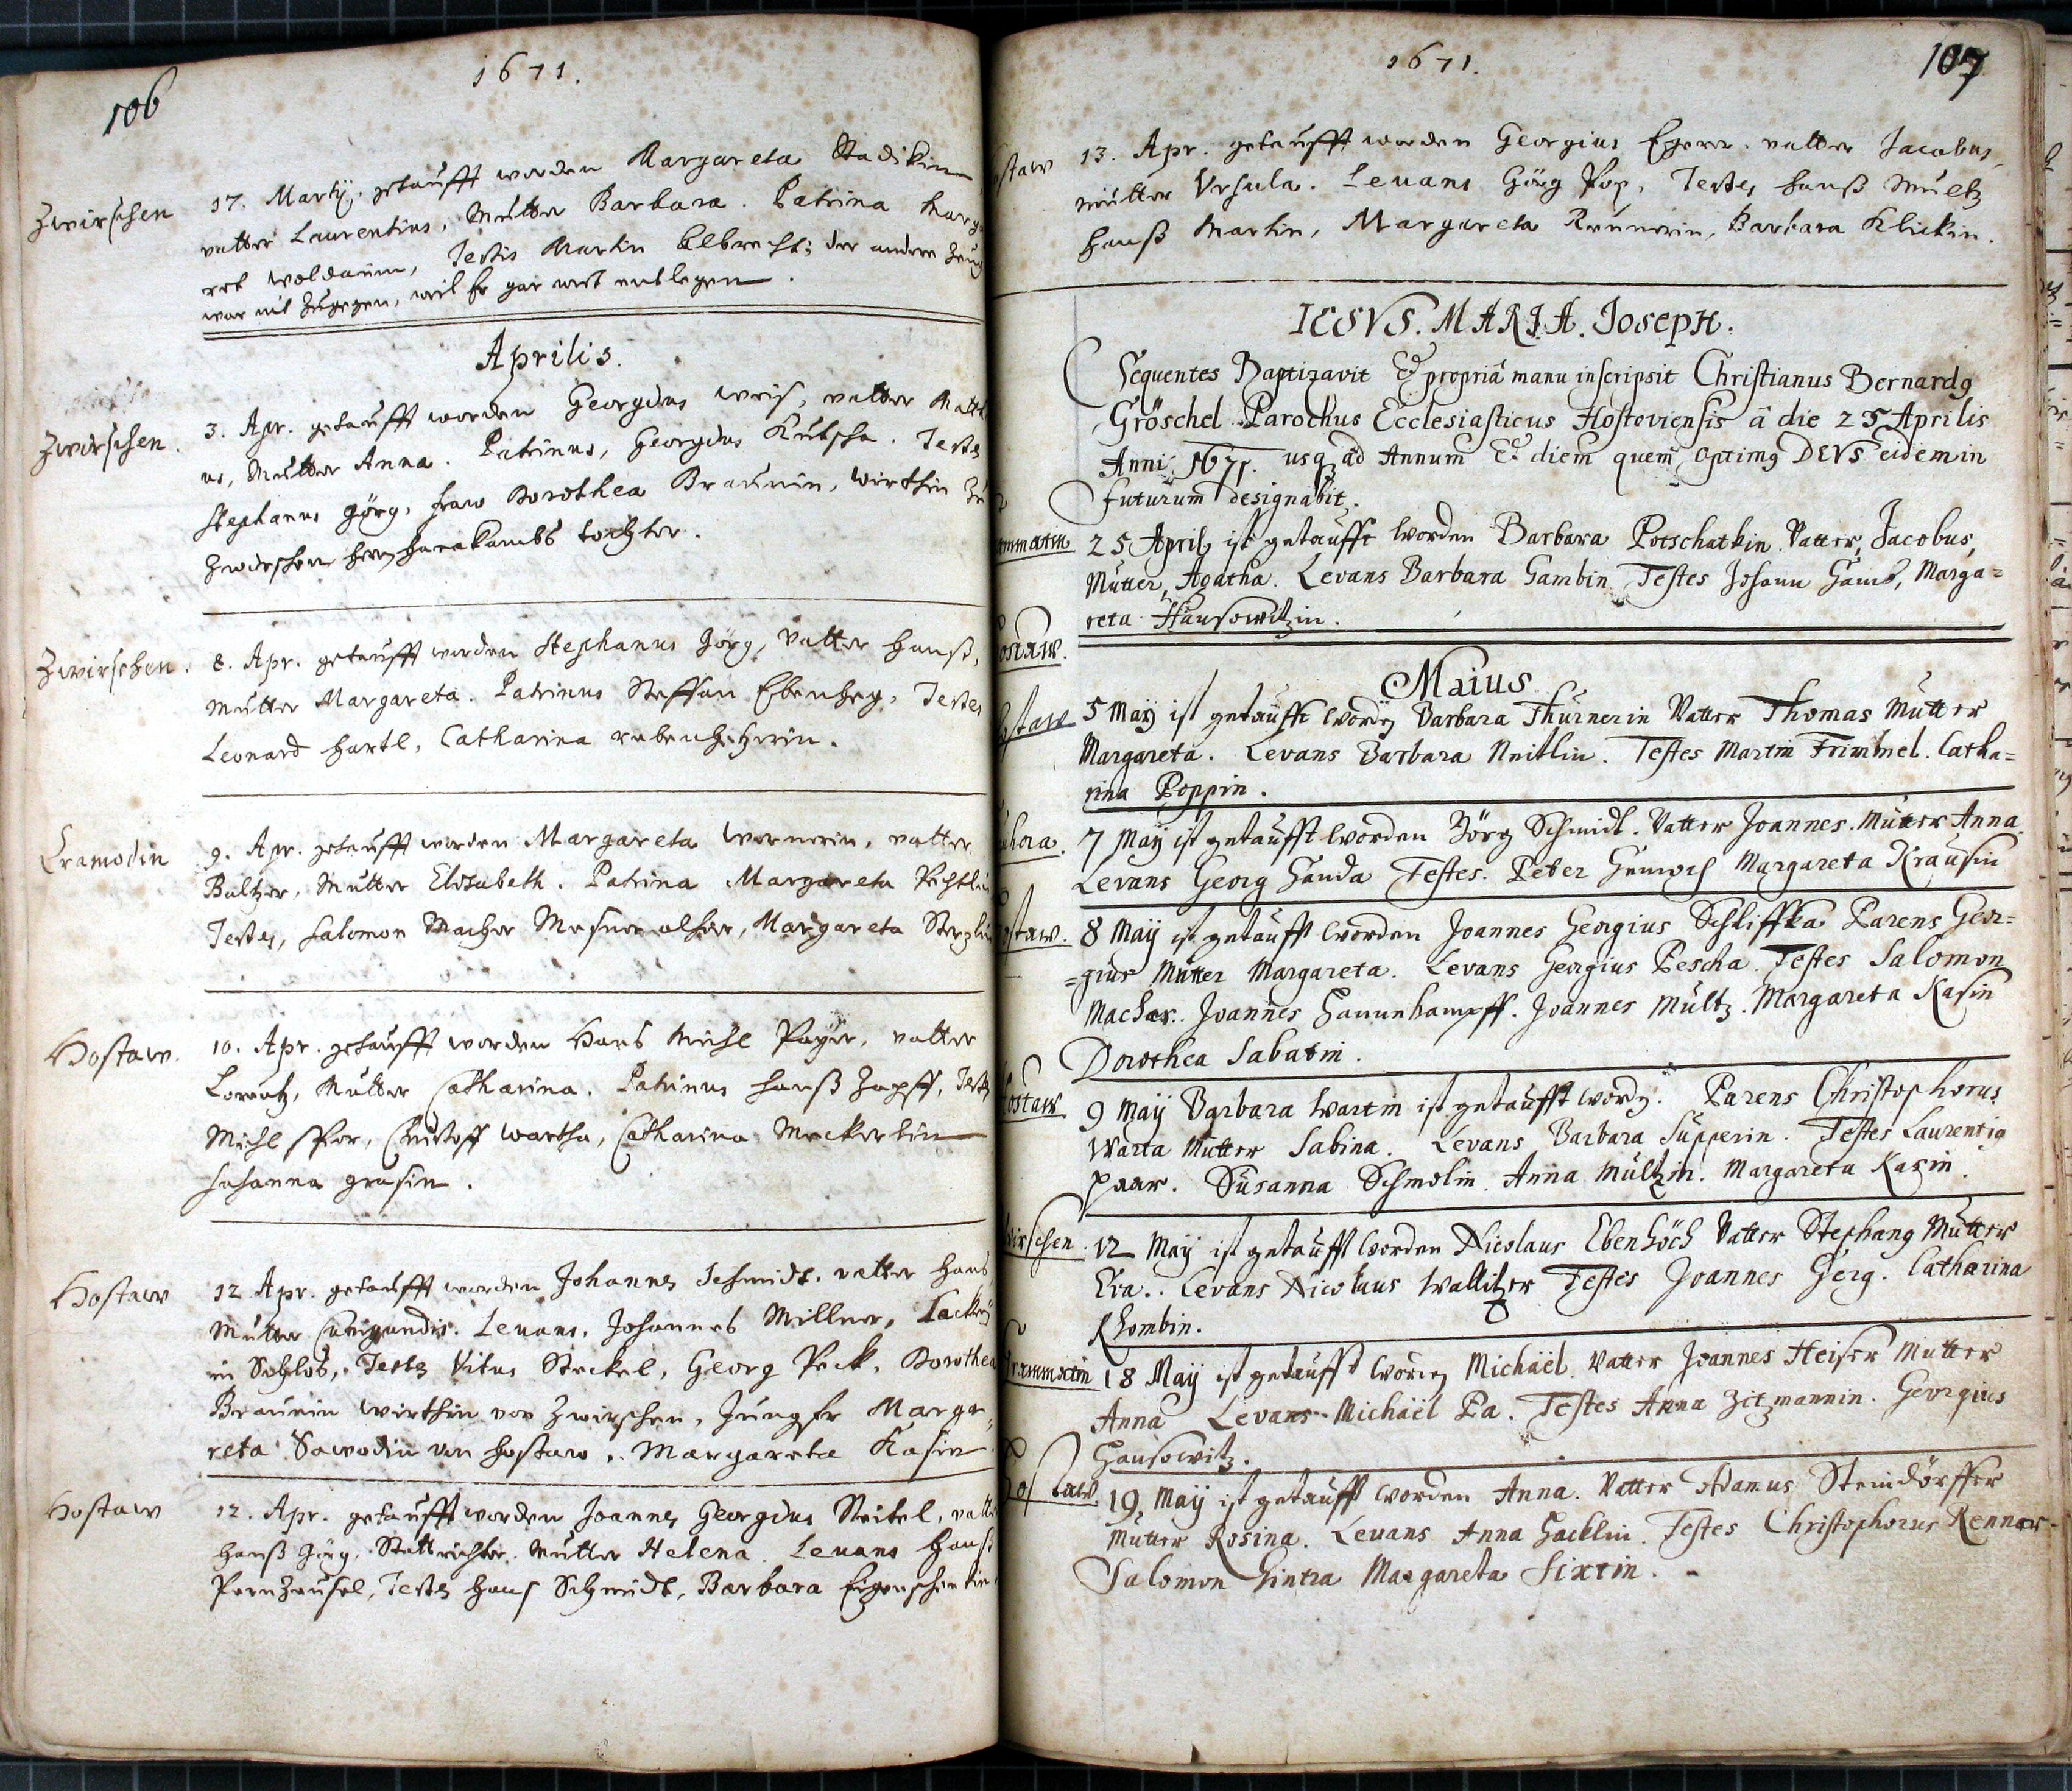 106
1671.
Zwirschen
17. Martÿ. getaufft worden Margareta Stadikin
vatter Laurentius, Mutter Barbara. Patrina Marg
ret woldauin, Testis Martin Albrecht; der andere Zeug
war nit Zugegen, weil Er gar weit entlegen.
Aprilis.
Zwirschen.
3. Apr. getaufft worden Georgius weis, vatter Matth
us, Mutter Anna. Patrinus, Georgius Kutscha. Testes
Stephanus Görg, fraw Dorothea Braunin, wirthin Zu
Zwirschen tochter.
Zwirschen.
8. Apr. getaufft worden Stephanus Görg, Vatter Hanß,
Mutter Margareta. Patrinus Steffan Ebenheg, Testes
Leonard Hartl, Catharina
Cramodin
9. Apr. getaufft worden Margareta Wernerin, vatter
Baltzer, Mutter Elisabeth. Patrina Margareta Pechtlin
Testes, Salomon Macher Mesner alhier, Margareta
Hostaw.
10. Apr. getaufft worden Hans Michl Payer, vatter
Lorentz, Mutter Catharina. Patrinus Hanß Zapff, Testes
Michl Christoff Wartha, Catharina Meckerlin
Johanna grasin.
Hostaw
12 Apr. getaufft worden Johannes Schmidt, vatter Hans
Mutter Cunigundis. Leuans, Johannes Millner,
im Schloß, Testes Vitus Steckel, Georg Peck, Dorothea
Braunin wirthin von Zwirschen, Jungfr Marga
reta Sawodin von Hostaw, Margareta Kasin
Hostaw
12. Apr. getaufft worden Joannes Georgius Steitel, vatter
Hanß Görg, Stattrichter, Mutter Helena. Leuans Hanß
Testes Hans Schmidt, Barbara
1671.
107
ostaw
13. Apr. getaufft worden Georgius Egerer. vatter Jacobus,
mutter Vrsula. Leuans Görg Pop, Testes Hanß Multz
Hanß Martin, Margareta Rennerin, Barbara Klickin.
IESVS. MARIA. Joseph.
Sequentes Baptizavit & propriâ manu inscripsit Christianus Bernardg
Gröschel Parochus Ecclesiasticus Hostoviensis â die 25 Aprilis
Anni 1671. usq ad Annum & diem quem optimg DEVS eidem in
futurum designabit.
ammatin
25 April ist getaufft worden Barbara Potschatkin. Vatter, Jacobus,
Mutter, Agatha. Levans Barbara Gambin. Testes Johann Gamb, Marga=
reta Hansowitzin.
ostaw.
Maius
ostaw
5 Maÿ ist getaufft worden Barbara Thurnerin Vatter Thomas Mutter
Margareta. Levans Barbara Neitlin. Testes Martin Frimmel. Catha=
rina Poppin.
uhora.
7 Maÿ ist getaufft worden Görg Schmidt. Vatter Joannes. Mutter Anna.
Levans Georg Ganda Testes. Peter Margareta Krausin
ostaw.
8 Maÿ ist getaufft worden Joannes Georgius Schliffka Parens Geor=
=gius Mutter Margareta. Levans Georgius Pescha. Testes Salomon
Macher. Joannes Hannenkampff. Joannes Multz. Margareta Kasin
Dorothea Sabatin.
Hostaw
9 Maÿ Barbara Wartin ist getaufft worden. Parens Christophorus
Warta Mutter Sabina. Levans Barbara Supperin. Testes Laurentig
Paar. Susanna Schmolin. Anna Multzin. Margareta Kasin.
wirschen.
12 Maÿ ist getaufft worden Nicolaus Ebenhöch Vatter Stephang Mutter
Eva. Levans Nicolaus Wallitzer Testes Joannes Gerg. Catharina
Khombin.
rammatin
18 Maÿ ist getaufft worden Michaël. Vatter Joannes Heiser Mutter
Anna Levans Michaël Pa. Testes Anna Zitzmannin. Georgius
Hansowitz.
Hostaw
19 Maÿ ist getaufft worden Anna. Vatter Adamus Steindörffer
Mutter Rosina. Levans Anna Hacklin. Testes Christophorus Renner
Salomon Hintra Margareta Sixtin.